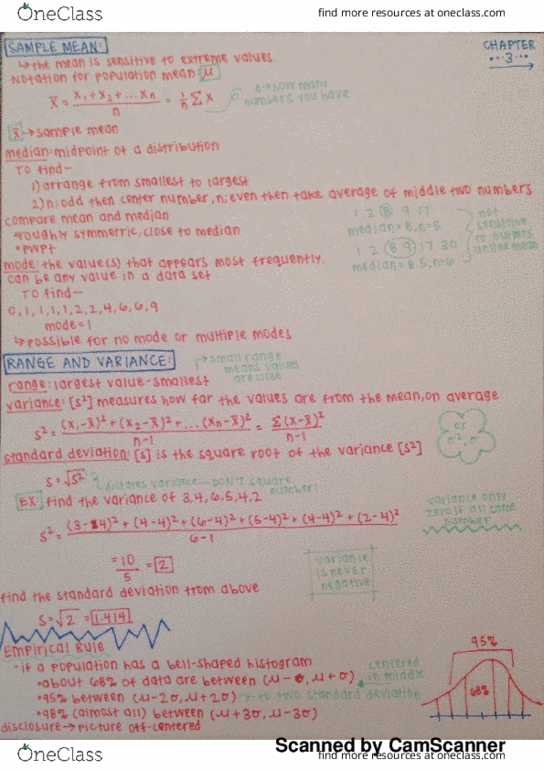 OneClass
find more resources at oneclass.com
SAMPLE MEAN:
CHAPTER
3
↳the mean is sensitive to extreme values.
Notation for population mean: μ
x̄ = x₁+x₂+...xₙ / n = 1/n Σx
n→how many
numbers you have
x̄→sample mean
median: midpoint of a distribution
TO find-
1) arrange from smallest to largest
2) n: odd then center number, n: even then take average of middle two numbers
compare mean and median
1 2 8 9 17
median=8, n=5
*roughly symmetric, close to median
*PWPt
1 2 8 9 17 20
median=8.5, n=6
not
sensitive
to
unlike mean
mode: the value(s) that appears most frequently.
can be any value in a data set
TO find-
0,1,1,1,1,2,2,4,6,6,9
mode=1
↳possible for no mode or multiple modes
RANGE AND VARIANCE:
small range
means values
are close
range: largest value-smallest
variance: [s²] measures how far the values are from the mean, on average
s² = (x₁-x̄)²+(x₂-x̄)²+...(xₙ-x̄)² / n-1 = Σ(x-x̄)² / n-1
or
σ², σ
standard deviation: [s] is the square root of the variance [s²]
s=√s² variance-DON'T square
number!
EX find the variance of 3,4,6,5,4,2
variance only
zero if all same
number
s² = (3-4)²+(4-4)²+(6-4)²+(5-4)²+(4-4)²+(2-4)² / 6-1
=10/5 =2
variance
is never
negative
find the standard deviation from above
s=√2 =1.414
Empirical Rule
·if a population has a bell-shaped histogram
·about 68% of data are between (μ-σ, μ+σ)
centered
in middle
·95% between (μ-2σ, μ+2σ) → two standard deviation
·98% (almost all) between (μ+3σ, μ-3σ)
disclosure→picture off-centered
95%
68%
Scanned by CamScanner
OneClass
find more resources at oneclass.com